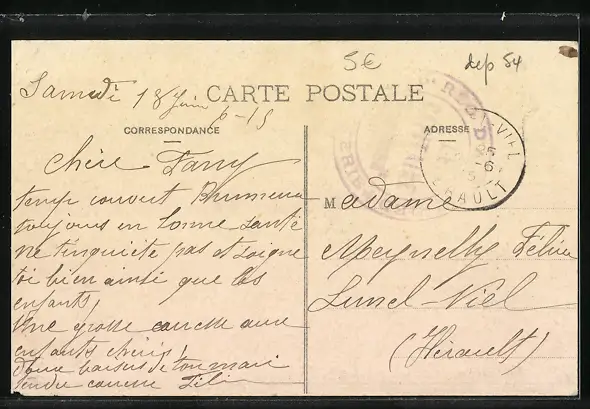 5€
dep 54
Samedi 18 Juin
6-15
CARTE POSTALE
CORRESPONDANCE
ADRESSE
Chère Fany
temp couvert Brumeux
toujours en bonne santé
ne tinquiète pas et soigne
toi bien ainsi que les
enfants,
Une grosse caresse aux
enfants chéris,
doux baisers de ton mari
tendre caresse Féli
Madame
Félicie
Lunel-Viel
(Hérault)
VIEL
6
RAULT